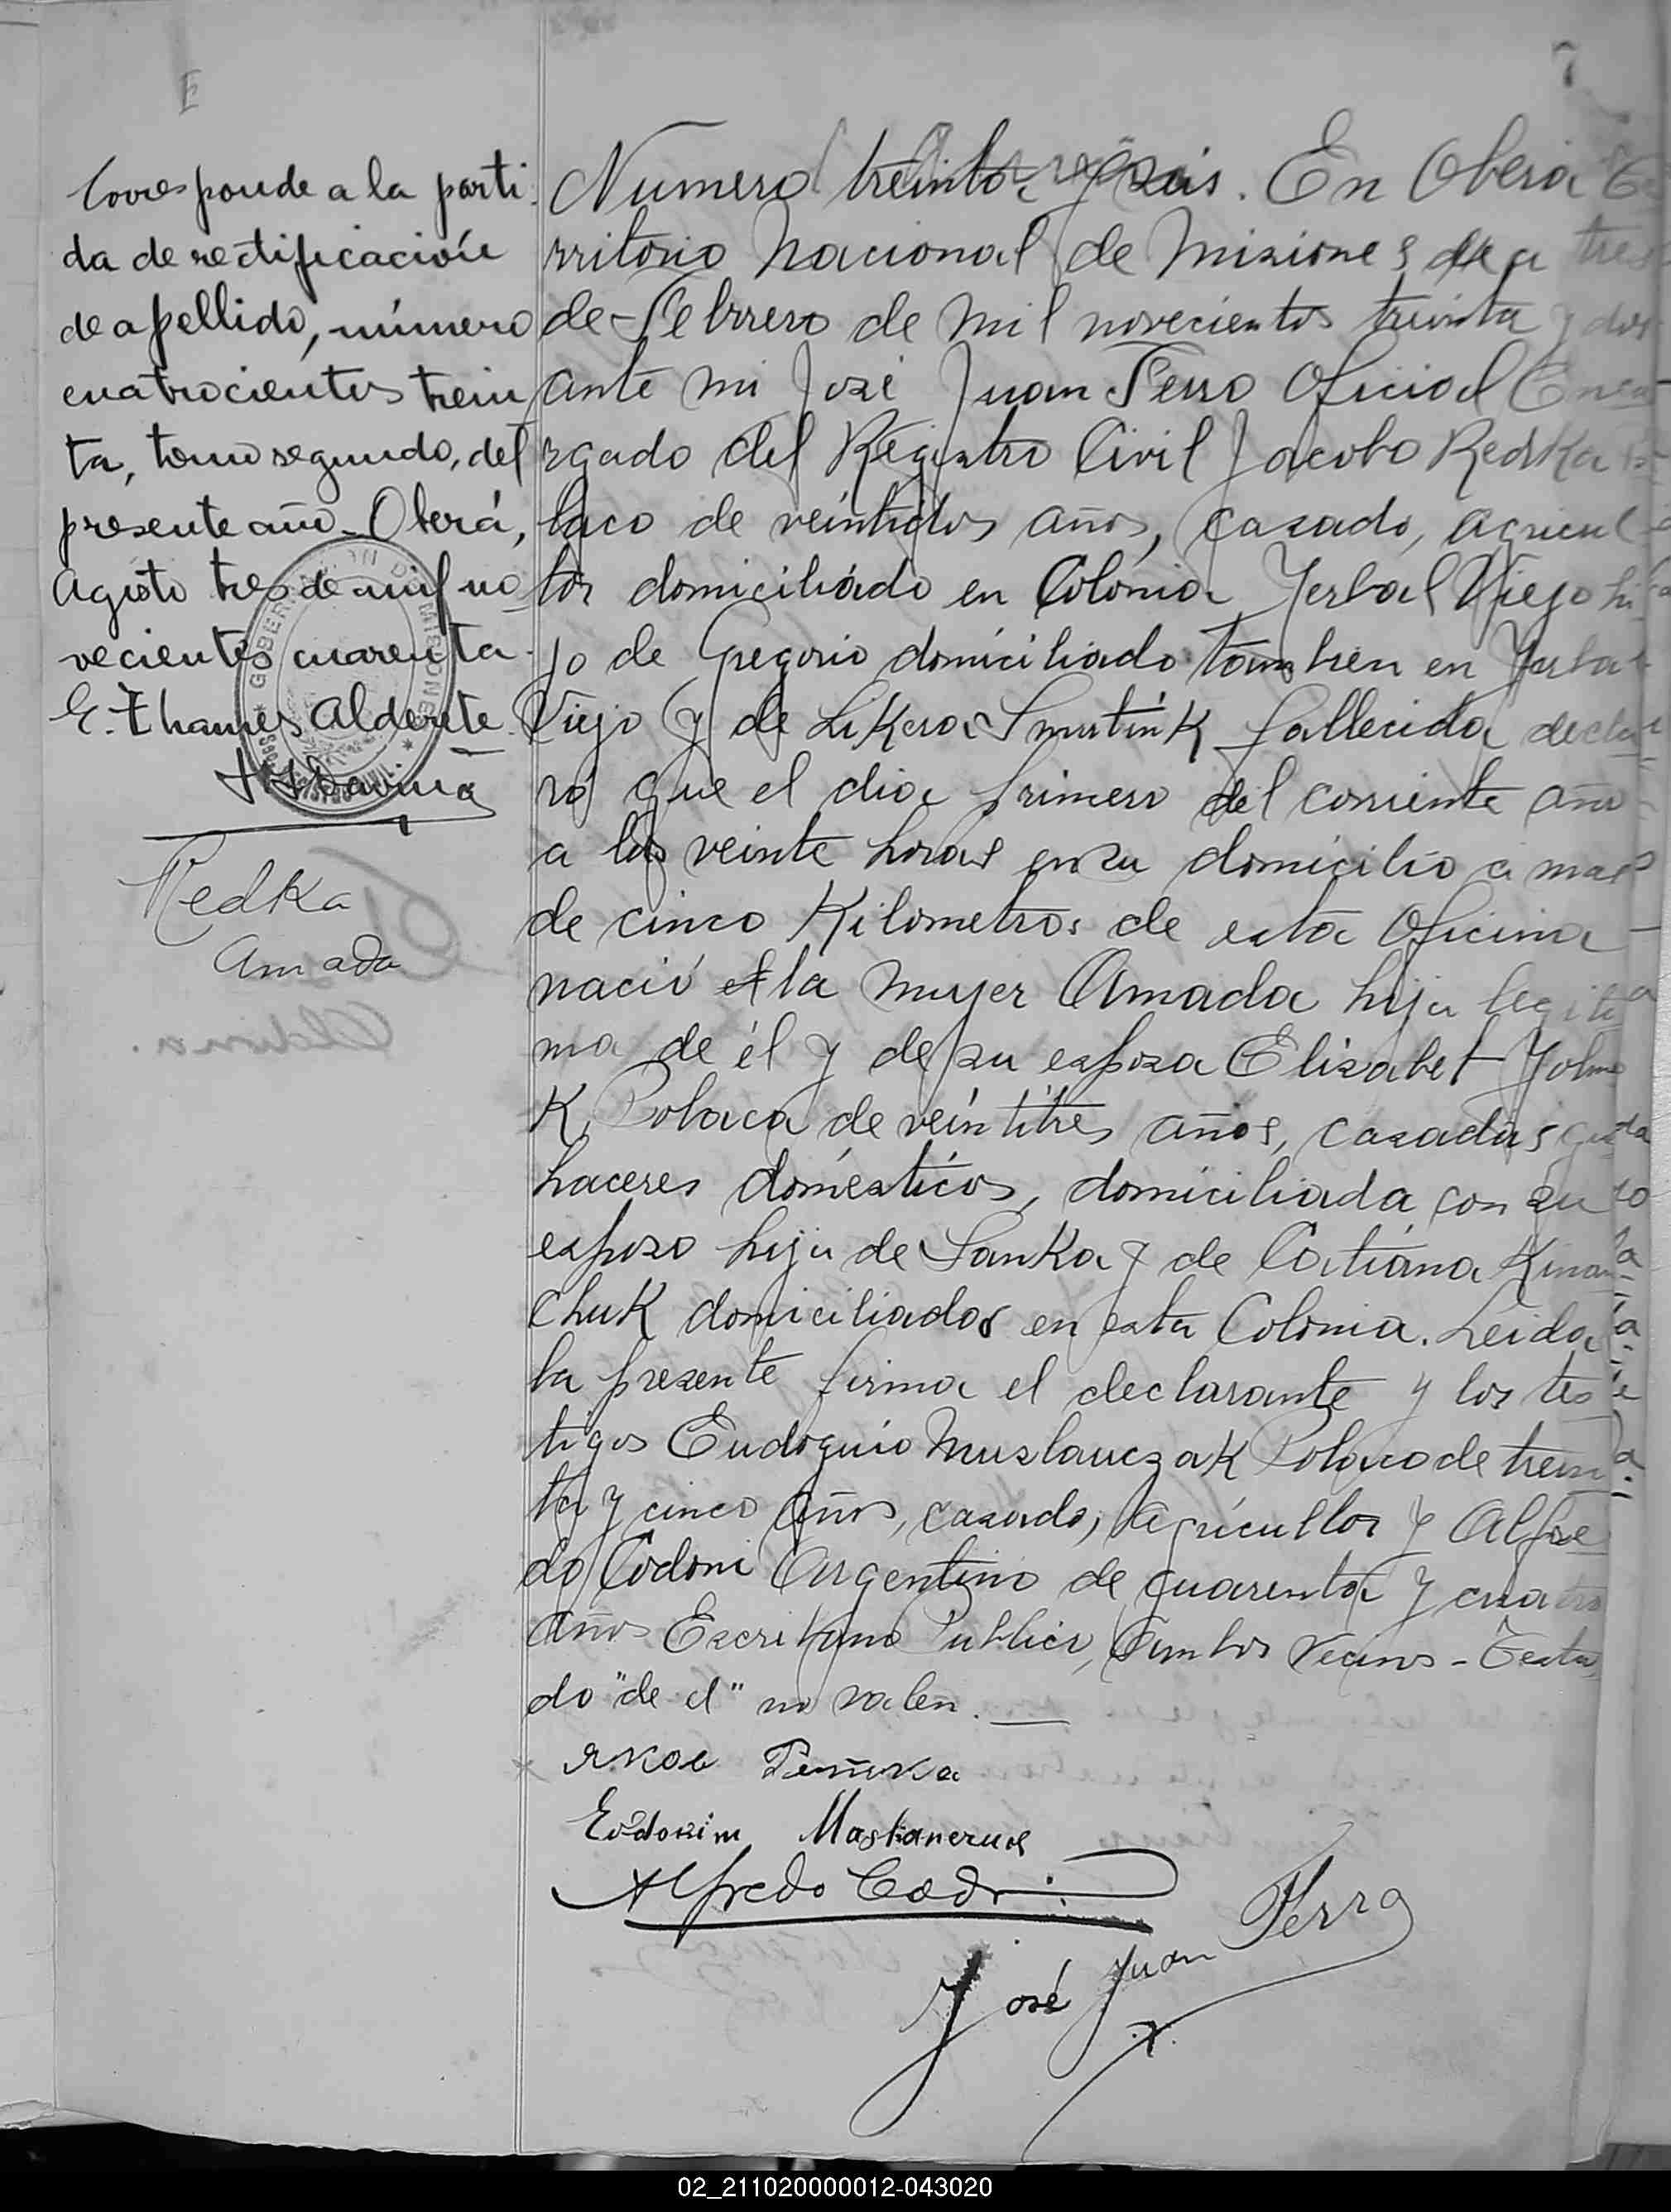 7
Corresponde a la parti
da de rectificación
de apellido, número
cuatrocientos trein
ta, tomo segundo, del
presente año. Oberá,
Agosto tres de mil no
vecientos cuarenta.
E. Thames Alderete
GOBERNACION DE MISIONES
Redka
Amada
Numero treinta y seis. En Oberá Te
rritorio Nacional de Misiones de a tres
de Febrero de mil novecientos treinta y dos
ante mi José Juan Ferro Oficial Enca
rgado del Registro Civil Jacobo Redka Po
laco de veintidos años, casado, agricul
tor domiciliado en Colonia Yerbal Viejo hi
jo de Gregorio domiciliado tambien en Yerbal
Viejo y de Likera Smutink fallecida decla
ró que el dia primero del corriente año
a las veinte horas en su domicilio a mas
de cinco Kilometros de esta Oficina
nació el la mujer Amada hija legiti
ma de él y de su esposa Elisabet
K Polaca de veintitres años, casada, que
haceres domésticos, domiciliada con su
esposo hija de Sanka y de Catiana Kinas
chuk domiciliados en esta Colonia. Leida
la presente firma el declarante y los tes
tigos Eudoquio Muslauczak Polaco de trein
ta y cinco años, casado, agricultor y Alfre
do Codoni Argentino de cuarenta y cuatro
años Escribano Publico, Ambos vecinos - Testa
do "de el" no valen.
Якоб Редька
Alfredo Codoni
José Juan Ferro
02_211020000012-043020